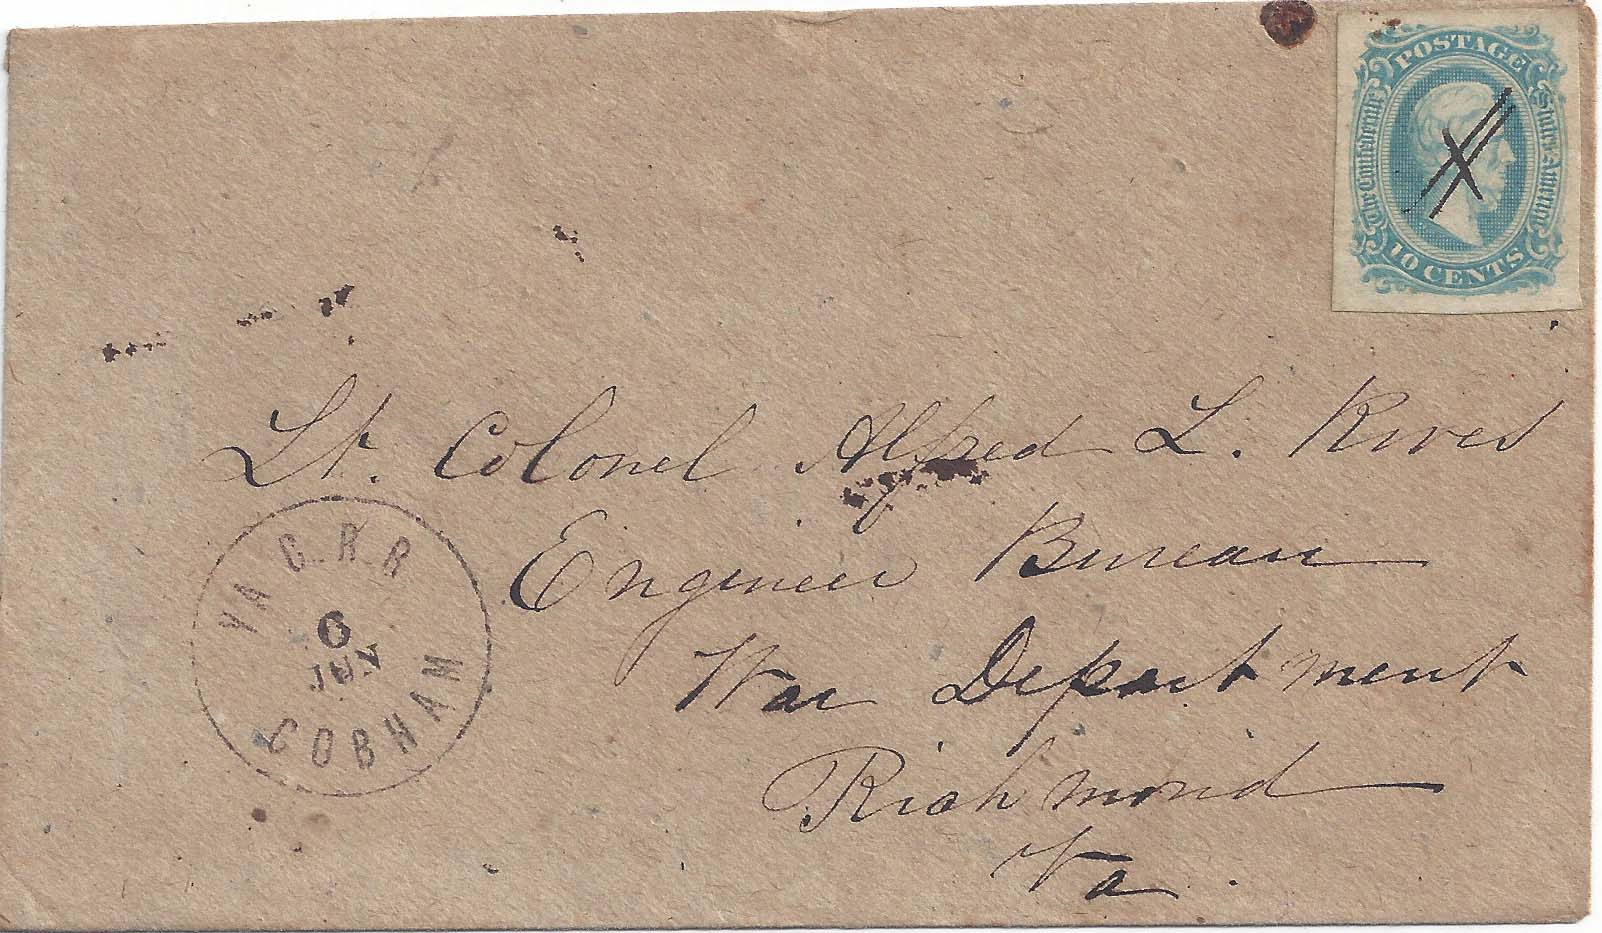 POSTAGE
The Confederate States of America
10 CENTS
Lt. Colonel Alfred L. Rives
Engineer Bureau
War Department
Richmond
Va.
VA C. R R
6
COBHAM